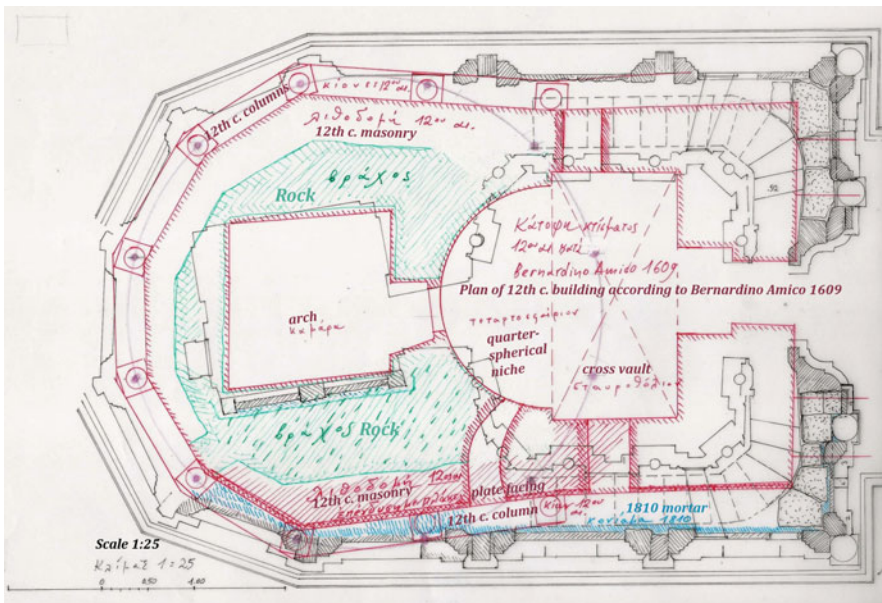 κίονες 12ου αι.
12th c. columns
λιθοδομή 12ου αι.
12th c. masonry
βράχος
Rock
Κάτοψη κτίσματος
12ου αι. κατά
Bernardino Amico 1609
Plan of 12th c. building according to Bernardino Amico 1609
arch
καμάρα
τεταρτοσφαίριον
quarter-
spherical
niche
cross vault
σταυροθόλιον
βράχος Rock
λιθοδομή 12ου αι.
12th c. masonry
plate facing
12th c. column
κίων 12ου
αι.
1810 mortar
κονίαμα 1810
Scale 1:25
Κλίμαξ 1:25
0 0,50 1,00